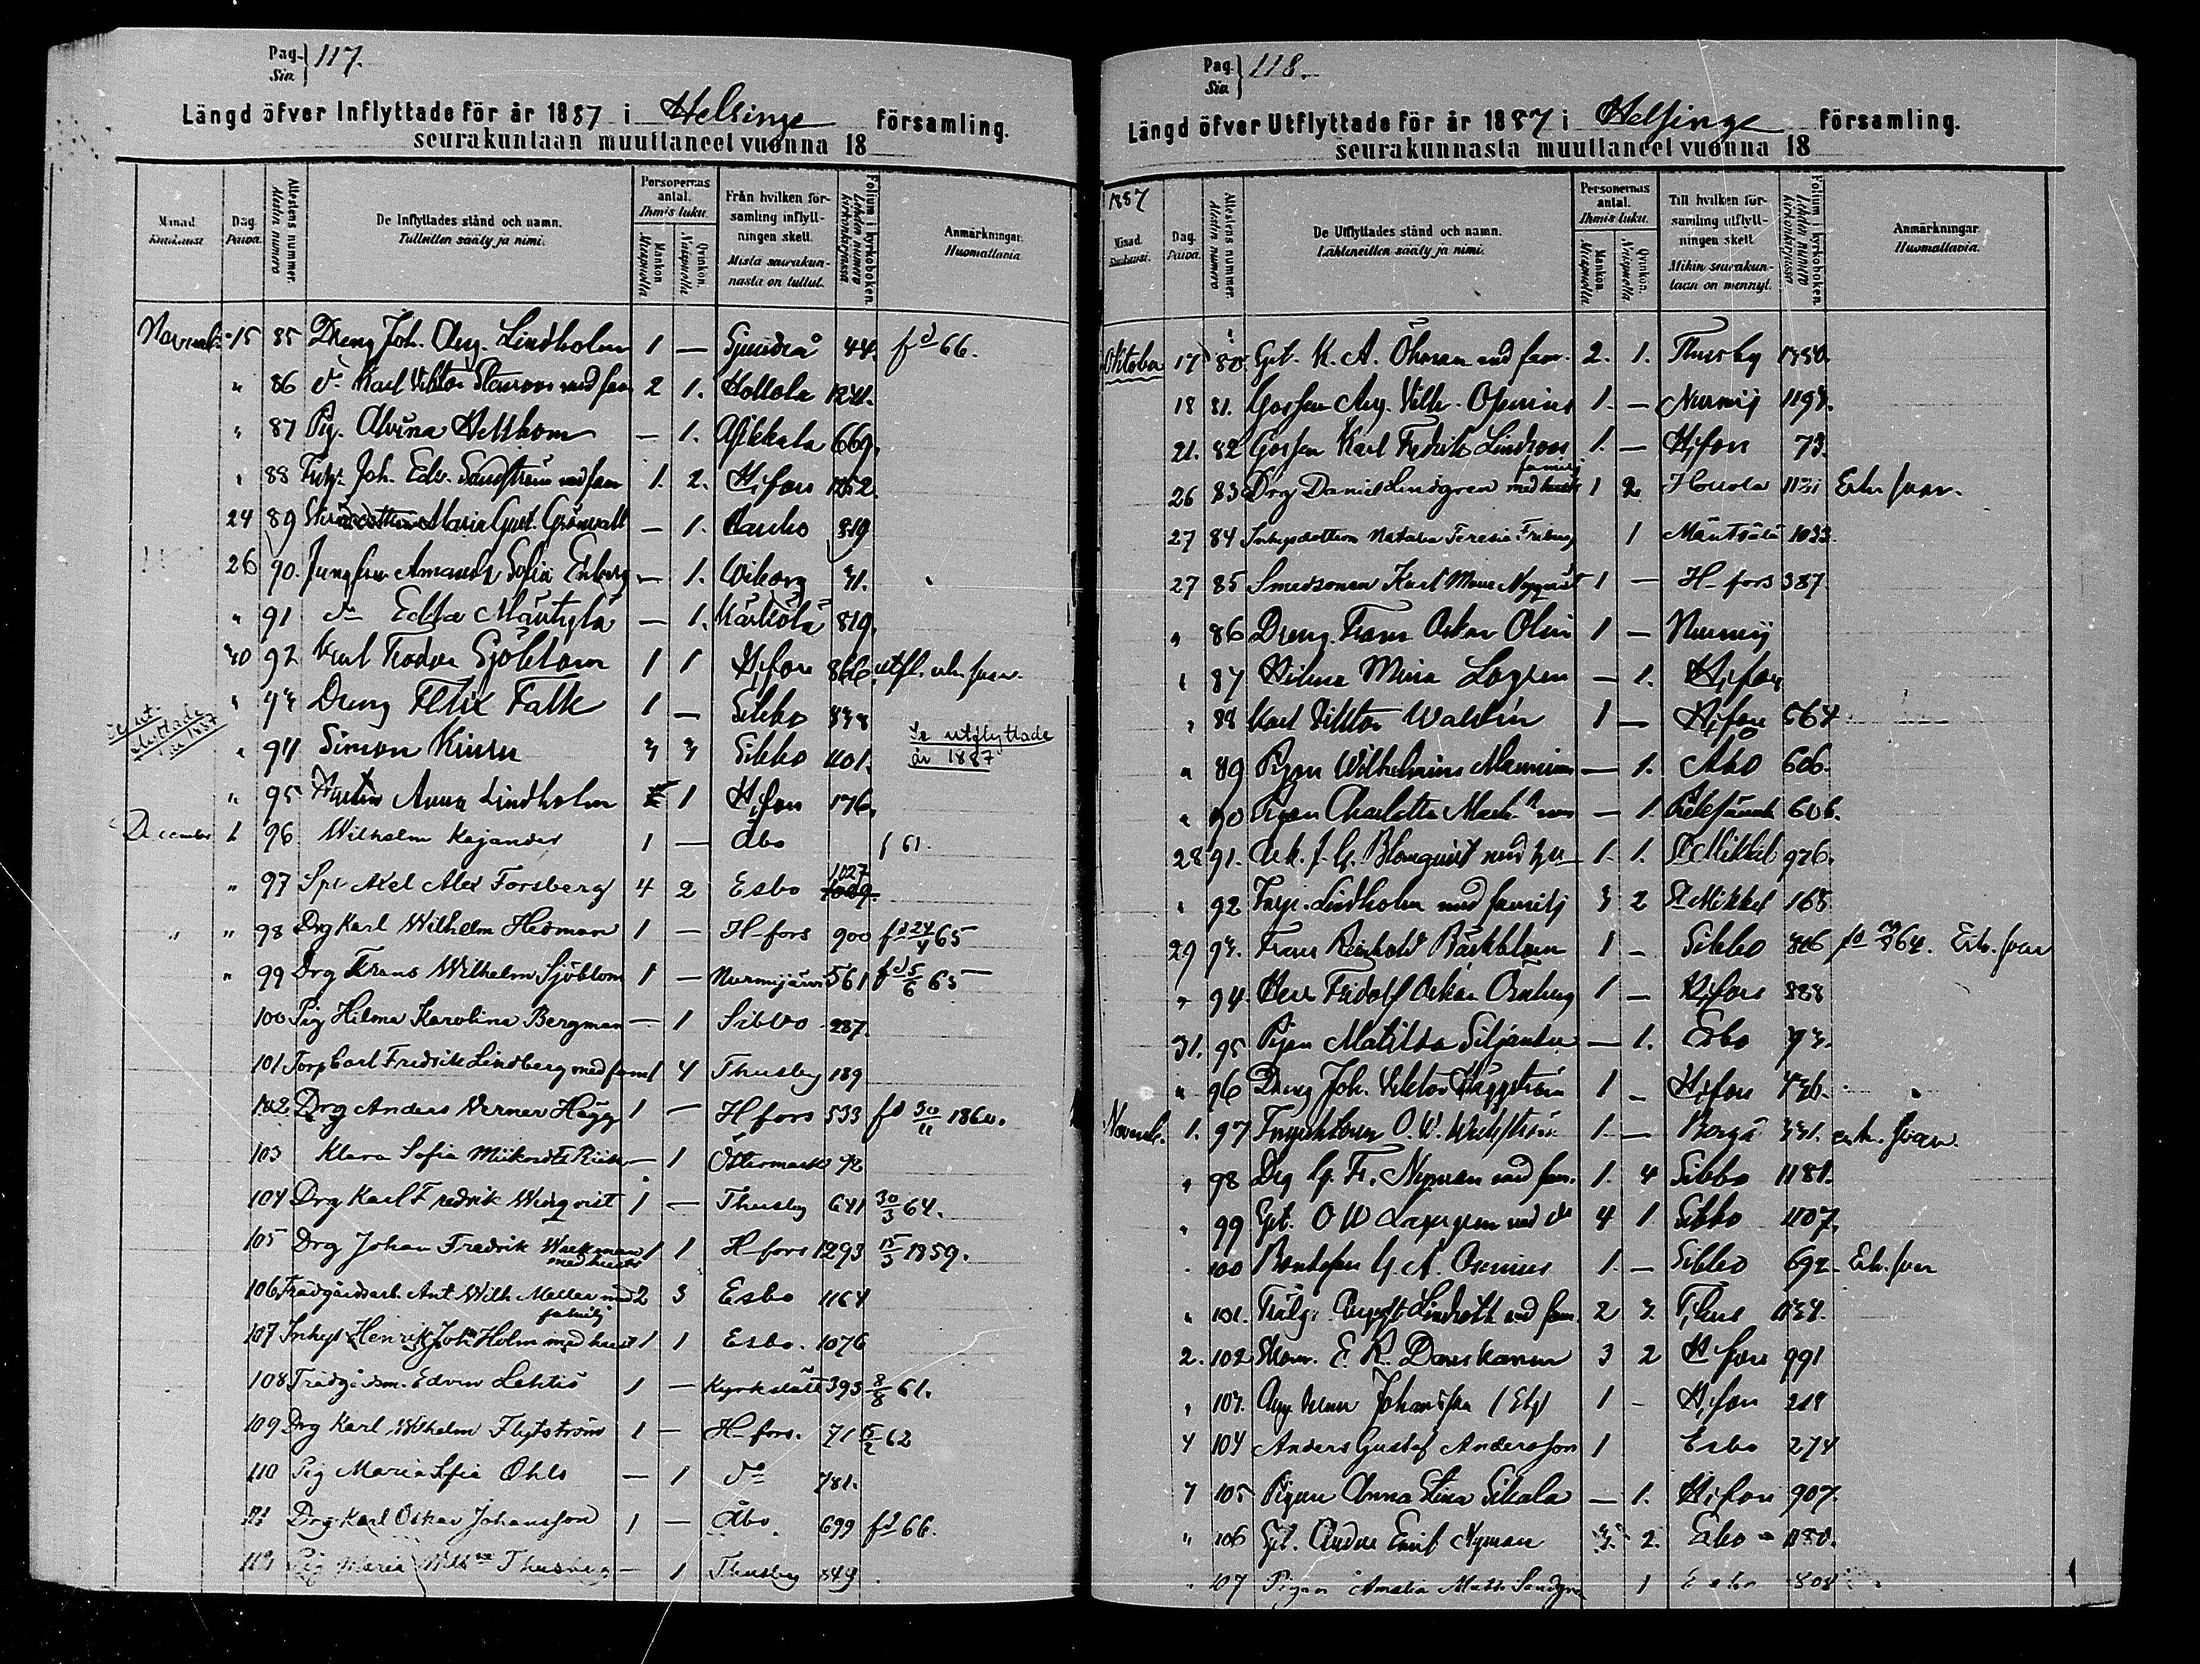 Pag. 117.
Siv.
Längd öfver Inflyttade för år 1887 i Helsinge församling.
seurakuntaan muuttaneet vuonna 18
Månad. Kuukausi
Dag. Päivä.
Attestens nummer. Attestin numero
De Inflyttades stånd och namn. Tulleitten sääty ja nimi.
Personernas antal. Ihmis luku.
Mankön. Miespuolia
Qvinkön. Naispuolia
Från hvilken församling inflyttningen skett. Mistä seurakunnasta on tullut.
Folium i kyrkoboken. Lehden numero kirkonkirjassa
Anmärkningar. Huomattavia
Novemb. 15 85 Dreng Joh. Aug. Lindholm 1 — Sjundeå 44. fd 66.
" 86 do Karl Viktor med fam 2 1. Hollola 1241.
" 87 Pig. Alvina Hellbom — 1. Asikkala 669.
" 88 Joh. Edv. Sandström med fam 1. 2. H:fors 1252.
24 89 Maria Gust. Grönvall — 1. Hauho 819
26 90. Jungfrun Amanda Sofia Enberg — 1. Wiborg 31.
" 91 do Edla Mäntylä — 1. Kärkölä 819.
30 92 Karl Teodor Sjöblom 1 1 H:fors 866. utfl. erh. svar.
" 93 Dreng Felix Falk 1 — Sibbo 838
Se utflyttade år 1887
" 94 Simon Kiuru 3 3 Sibbo 1101. Se utflyttade år 1887
" 95 Anna Lindholm 1 H:fors 176.
December 1 96 Wilhelm Kajander 1 — Åbo f 61.
" 97 Spr Axel Alex Forsberg 4 2 Esbo 1027
" " 98 Drg Karl Wilhelm Hedman 1 — H-fors 900 fd 24/4 65
" 99 Drg Frans Wilhelm Sjöblom 1 — Nurmijärvi 561 fd 5/6 65
100 Pig Hilma Karolina Bergman — 1 Sibbo 287.
101 Torp Carl Fredrik Lindberg med fam 1 4 Thusby 189
102 Drg Anders Verner Hägg 1 — H fors 533 fd 30/11 1860.
103 Klara Sofia — 1 Östermark 72
104 Drg Karl Fredrik Winqvist 1 — Thusby 641 30/3 64.
105 Drg Johan Fredrik Wickman med hustr 1 1 H-fors 1293 15/3 1859.
106 Trädgårdsarb. Ant Wilh Mellar med familj 2 3 Esbo 1164
107 Inhys Henrik Joh Holm med hust 1 1 Esbo. 1076
108 Trädgårdsm. Edvin Lehtis 1 — Kyrkslätt 393 8/8 61.
109 Drg Karl Wilhelm Flytström 1 — H-fors. 71 15/2 62
110 Pig Maria Sofia Öhls — 1 do 781.
111 Drg Karl Oskar Johansson 1 — Åbo 699 fd 66.
112 Pig Maria Thusberg — 1 Thusby 849
Pag. 118.
Siv.
Längd öfver Utflyttade för år 1887 i Helsinge församling.
seurakunnasta muuttaneet vuonna 18
1887
Månad. Kuukausi.
Dag. Päivä.
Attestens nummer. Attestin numero
De Utflyttades stånd och namn. Lähteneitten sääty ja nimi.
Personernas antal. Ihmis luku.
Mankön. Miespuolia
Qvinkön. Naispuolia
Till hvilken församling utflyttningen skett. Mihin seurakuntaan on mennyt.
Folium i kyrkoboken. Lehden numero kirkonkirjassa
Anmärkningar. Huomattavia
Oktober 17 80 K. A. Öhman med fam. 2. 1. Thusby 1350.
18 81. Gossen Aug. Vilh. Osenius 1. — Nurmij 1193.
21. 82 Gossen Karl Fredrik Lindroos 1. — H:fors 73.
26 83 Drg Daniel Lindgren med familj 1 2. Hollola 1131 Erh. svar.
27 84 Inhysdottern Natalia Teresia Friberg 1 Mäntsälä 1033
27 85 Smedsonen Karl Nyqvist 1 — H-fors 387.
" 86 Dreng. Frans Oskar Olin 1 — Nurmij
" 87 Hilma Mina Logren — 1. H:fors
" 88 Karl Viktor Waldén 1 — H:fors 564
" 89 Pigan Wilhelmina — 1. Åbo 606.
" 90 Pigan Charlotta — 1. 606.
28 91. J. G. Blomqvist med hu 1. 1. St Mikkel 976.
" 92 Lindholm med familj 3 2 St Mikkel 165
29 93. Frans Reinhold Bäckblom 1 — Sibbo 806 Erh. svar
" 94 Fridolf Oskar 1 — H:fors 888
31. 95 Pigan Matilda Siljander — 1. Esbo 93.
" 96 Dreng Joh. Viktor Häggström 1 — H:fors 436.
Novemb. 1. 97 O. W. 1. — Borgå 331. erh. svar.
" 98 Drg G. Fr. Nyman med fam. 1. 4 Sibbo 1181.
" 99 O W Lagergren med do 4 1 Sibbo 1107.
100 G. A. Osenius 1. — Sibbo 692 Erh. svar
" 101. August Lindroth med fam. 2 3. 1134.
2. 102 E. R. Danskanen 3 2 H fors 991
" 103. Johansson 1 — H:fors 218
4 104 Anders Gustaf Andersson 1 Esbo 274
7 105 Pigan Anna Lisa Sikala — 1. H:fors 907.
" 106 Emil Nyman 3. 2. Esbo 1180.
107 Pigan Amalia 1 Esbo 808